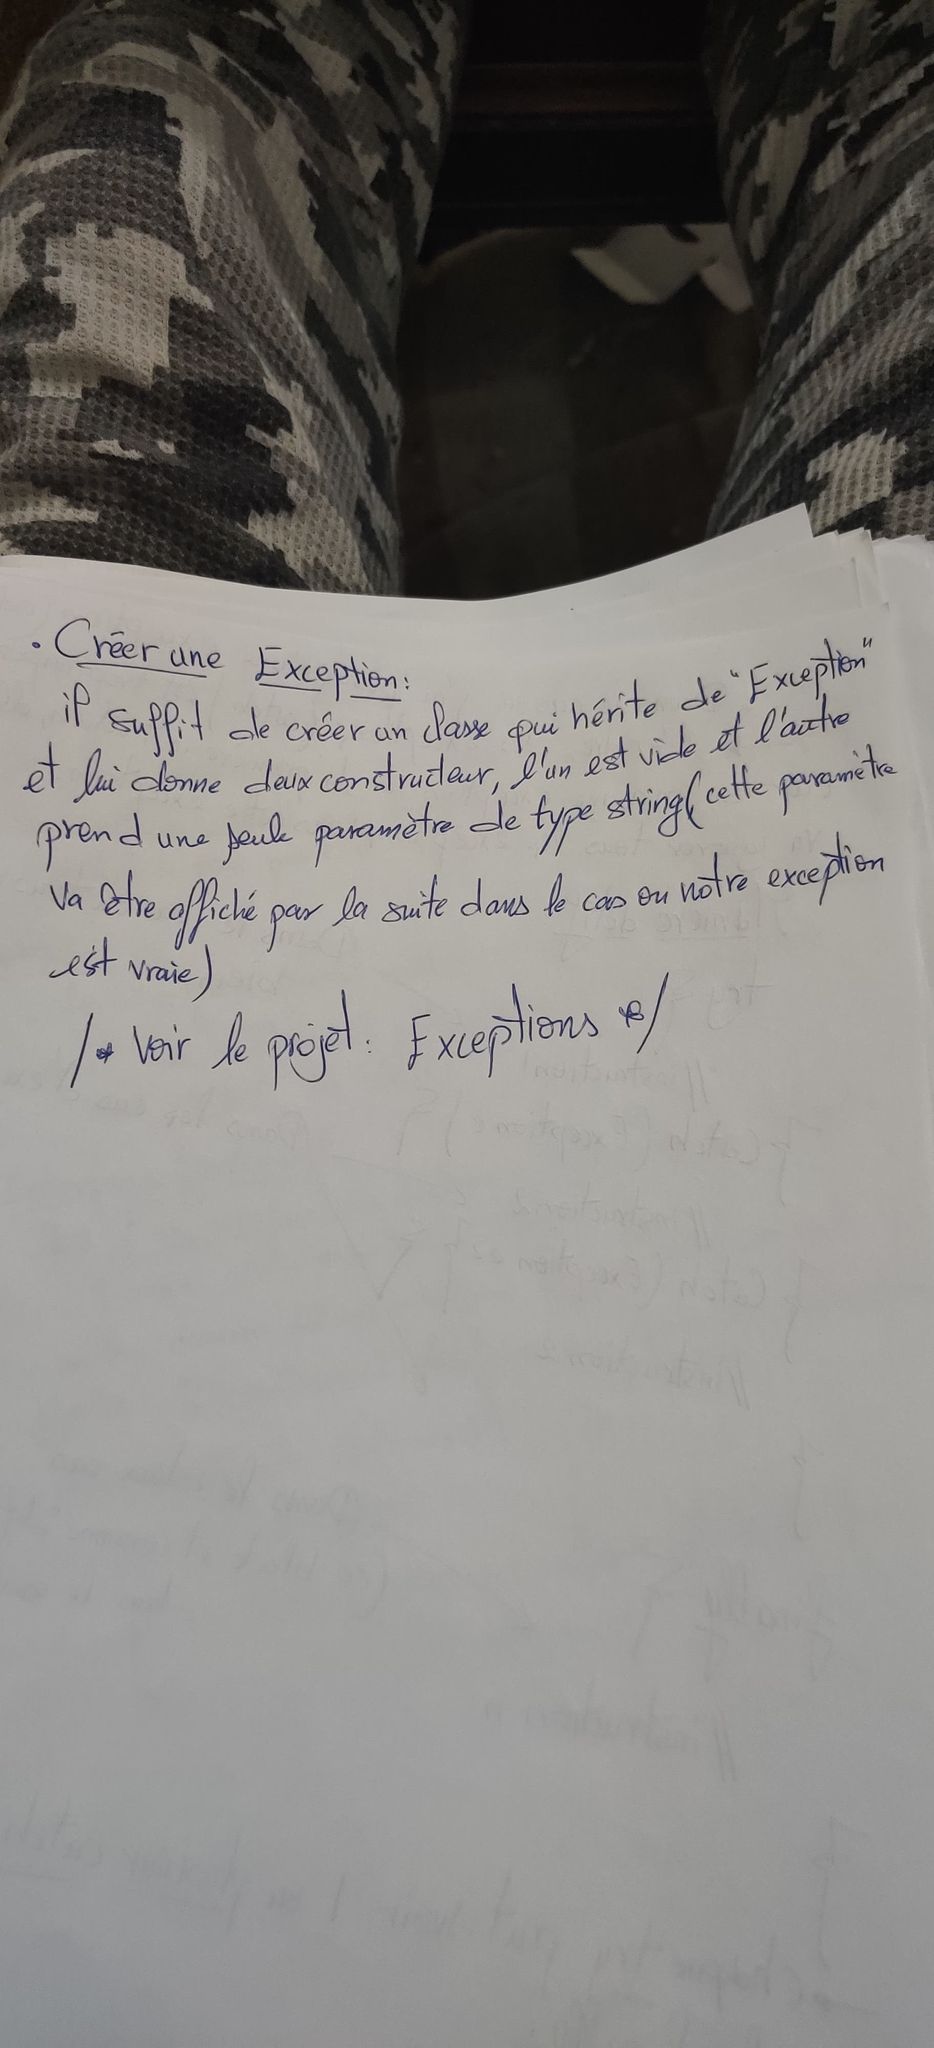 . Créer une Exception:
il suffit de créer un classe qui hérite de "Exception"
et lui donne deux constructeur, l'un est vide et l'autre
prend une seule paramètre de type string (cette paramètre
va être affiché par la suite dans le cas ou notre exception
est vraie)
/* Voir le projet: Exceptions */